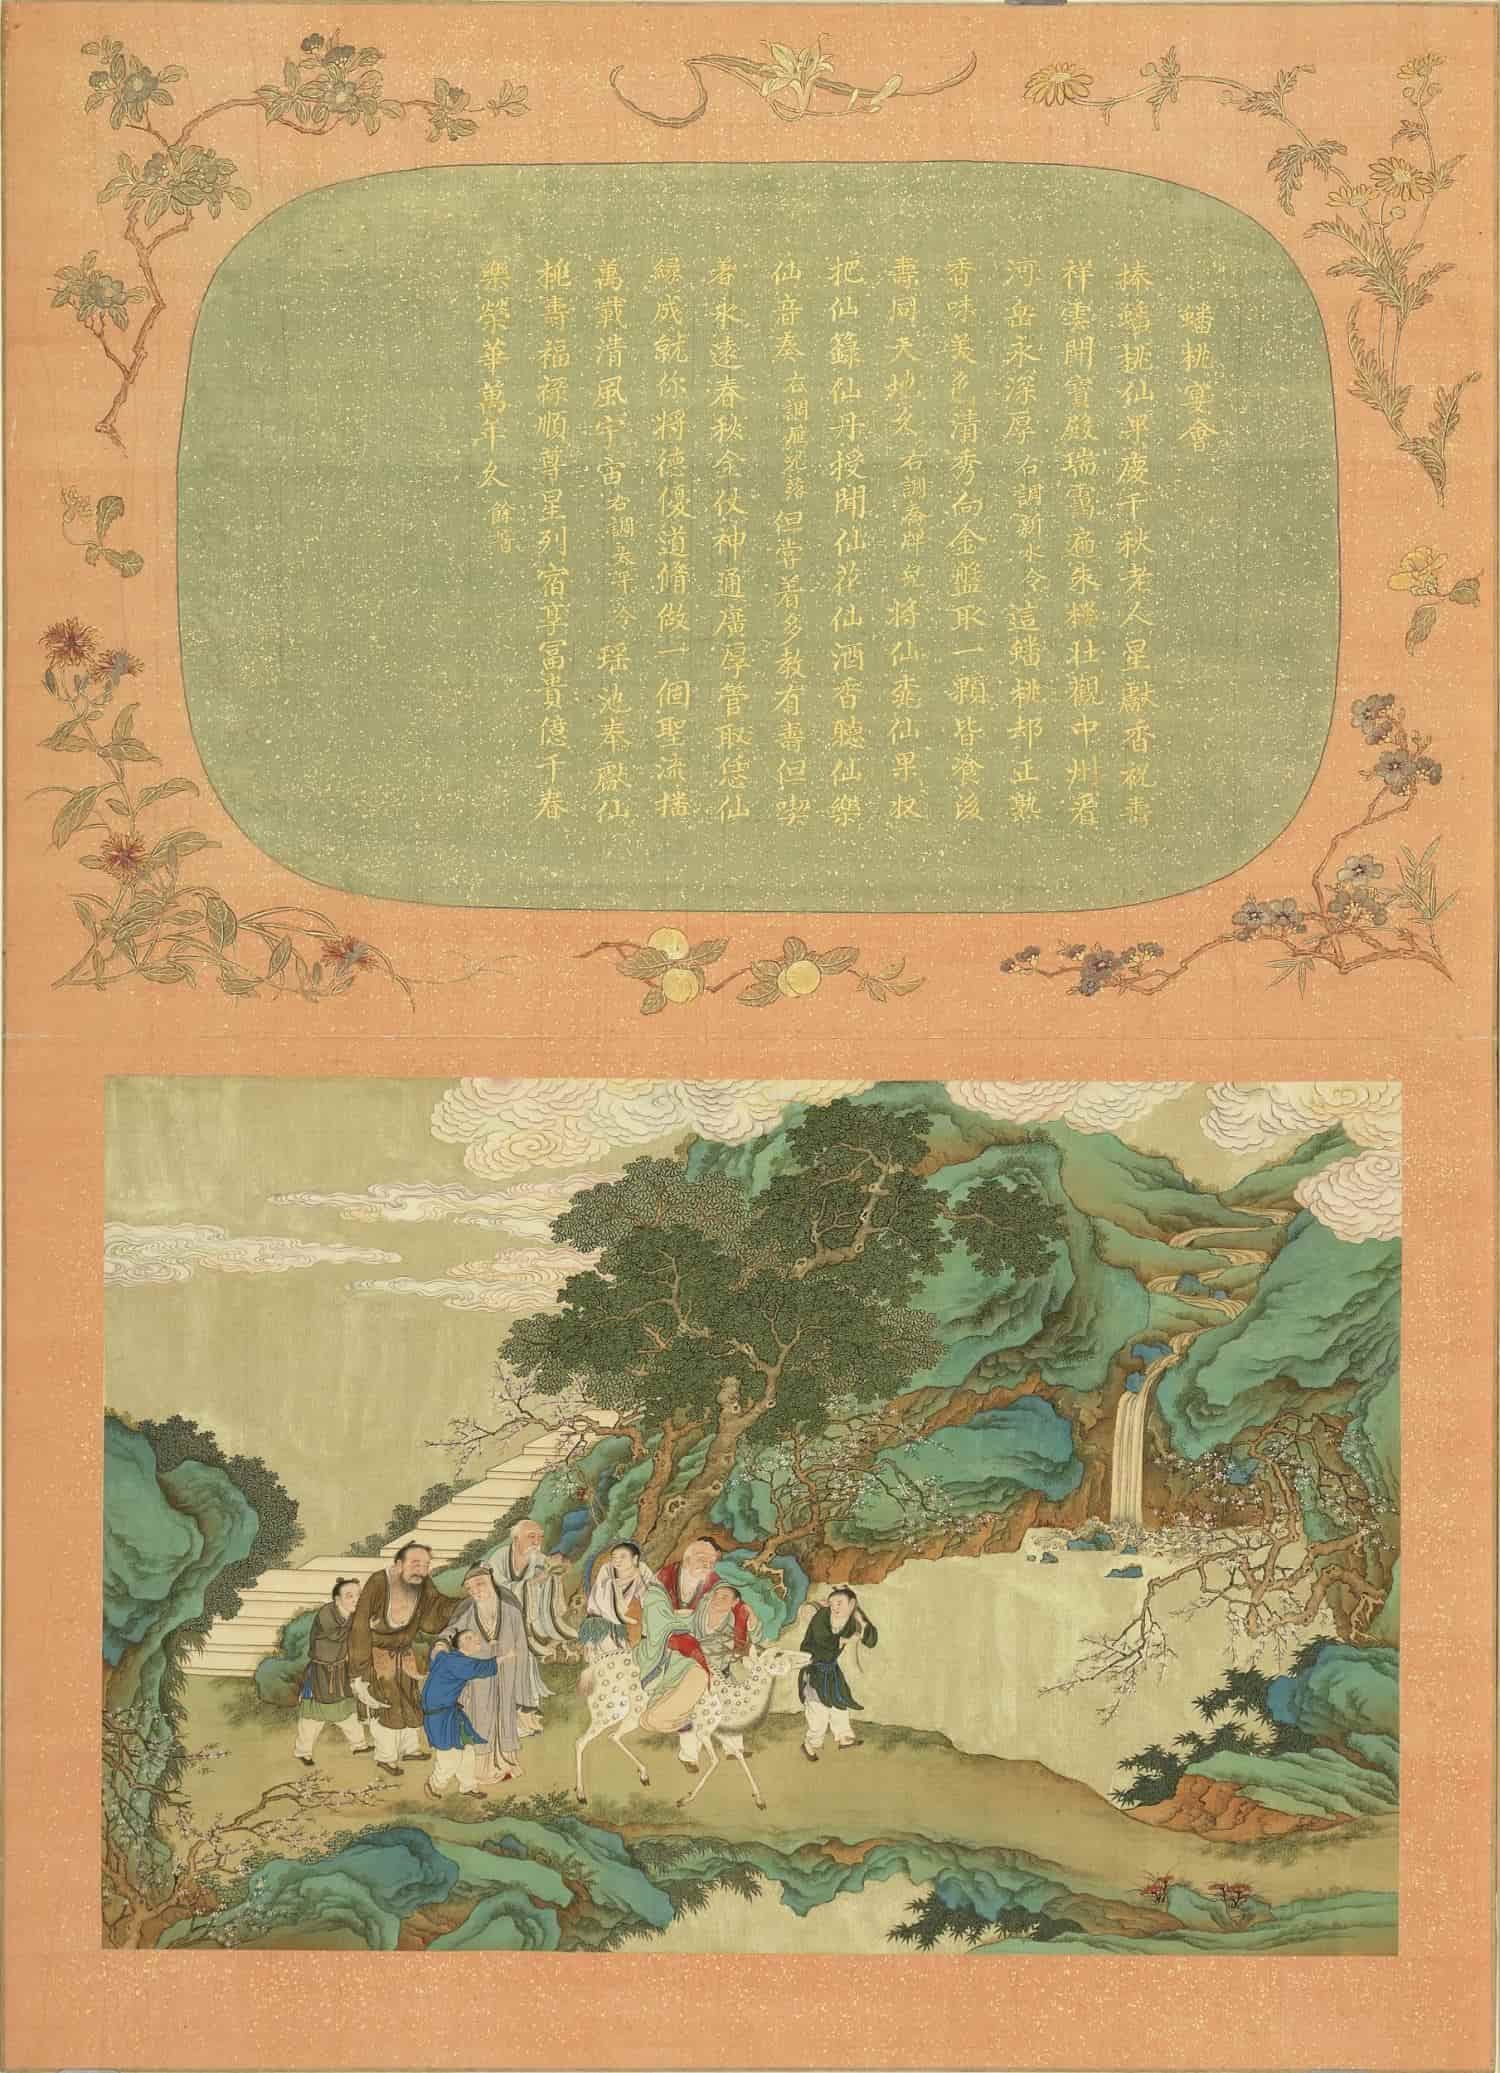 蟠桃宴會
捧蟠桃仙果慶千秋老人星獻香祝壽
祥雲開寶殿瑞靄遍朱樓壯觀中州看
河岳永深厚右調新水令這蟠桃却正熟
香味美色清秀向金盤取一顆皆飡後
壽同天地久右調喬牌兒將仙棗仙果収
把仙籙仙丹授聞仙花仙酒香聽仙樂
仙音奏右調雁兒落但嘗着多教有壽但喫
着永遠春秋全仗神通廣厚管取恁仙
緣成就你將德優道脩做一個聖流播
萬載清風宇宙右調太平令瑤池奉獻仙
桃壽福祿順尊星列宿享富貴億千春
樂榮華萬年久餘音